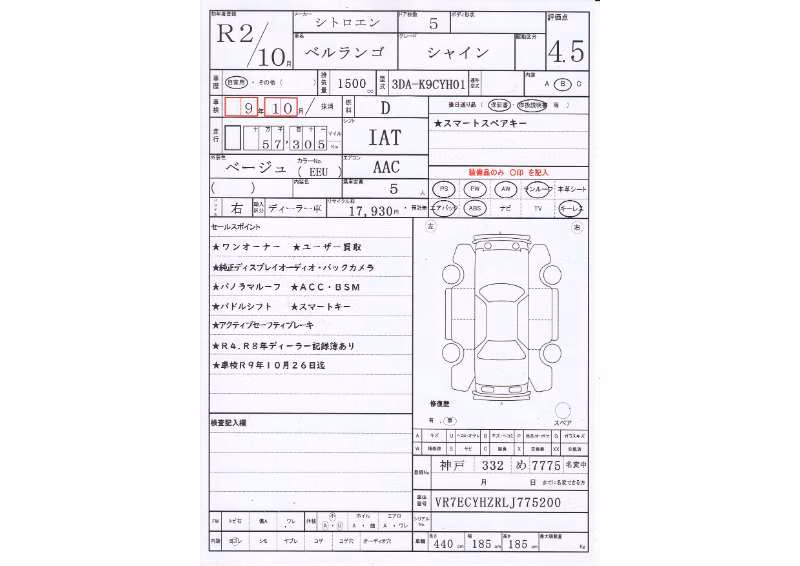 初年度登録 R2/10月
メーカー シトロエン ドア枚数 5 ボディ形状
車名 ベルランゴ グレード シャイン 駆動区分
評価点 4.5
車歴 自家用・その他( ) 排気量 1500cc 型式 3DA-K9CYH01 内装 A B C
車検 9年10月/抹消 燃料 D 後日送り品(保証書・取扱説明書 等)
走行 十万千百十一 57,305 マイル Km シフト IAT
★スマートスペアキー
外装色 ベージュ カラーNo. (EEU) エアコン AAC
装備品のみ 〇印 を記入
( ) 内装色 乗車定員 5人
PS PW AW サンルーフ 本革シート
ハンドル 右 輸入区分 ディーラー車 リサイクル料 17,930円
エアバック ABS ナビ TV キーレス
セールスポイント
左 右
★ワンオーナー ★ユーザー買取
★純正ディスプレイオーディオ・バックカメラ
★パノラマルーフ ★ACC・BSM
★パドルシフト ★スマートキー
★アクティブセーフティブレーキ
★R4.R8年ディーラー記録簿あり
★車検R9年10月26日迄
修復歴
有 . 無
スペア
検査記入欄
登録No 神戸 332 め 7775 名変中
月 日 までに名変できる方
車台番号 VR7ECYHZRLJ775200
シリアルNo.
内装 ヨゴレ シミ ヤブレ コゲ コゲ穴 オーディオ穴
車輌 長さ 440cm 幅 185cm 高さ 185cm 最大積載量 Kg